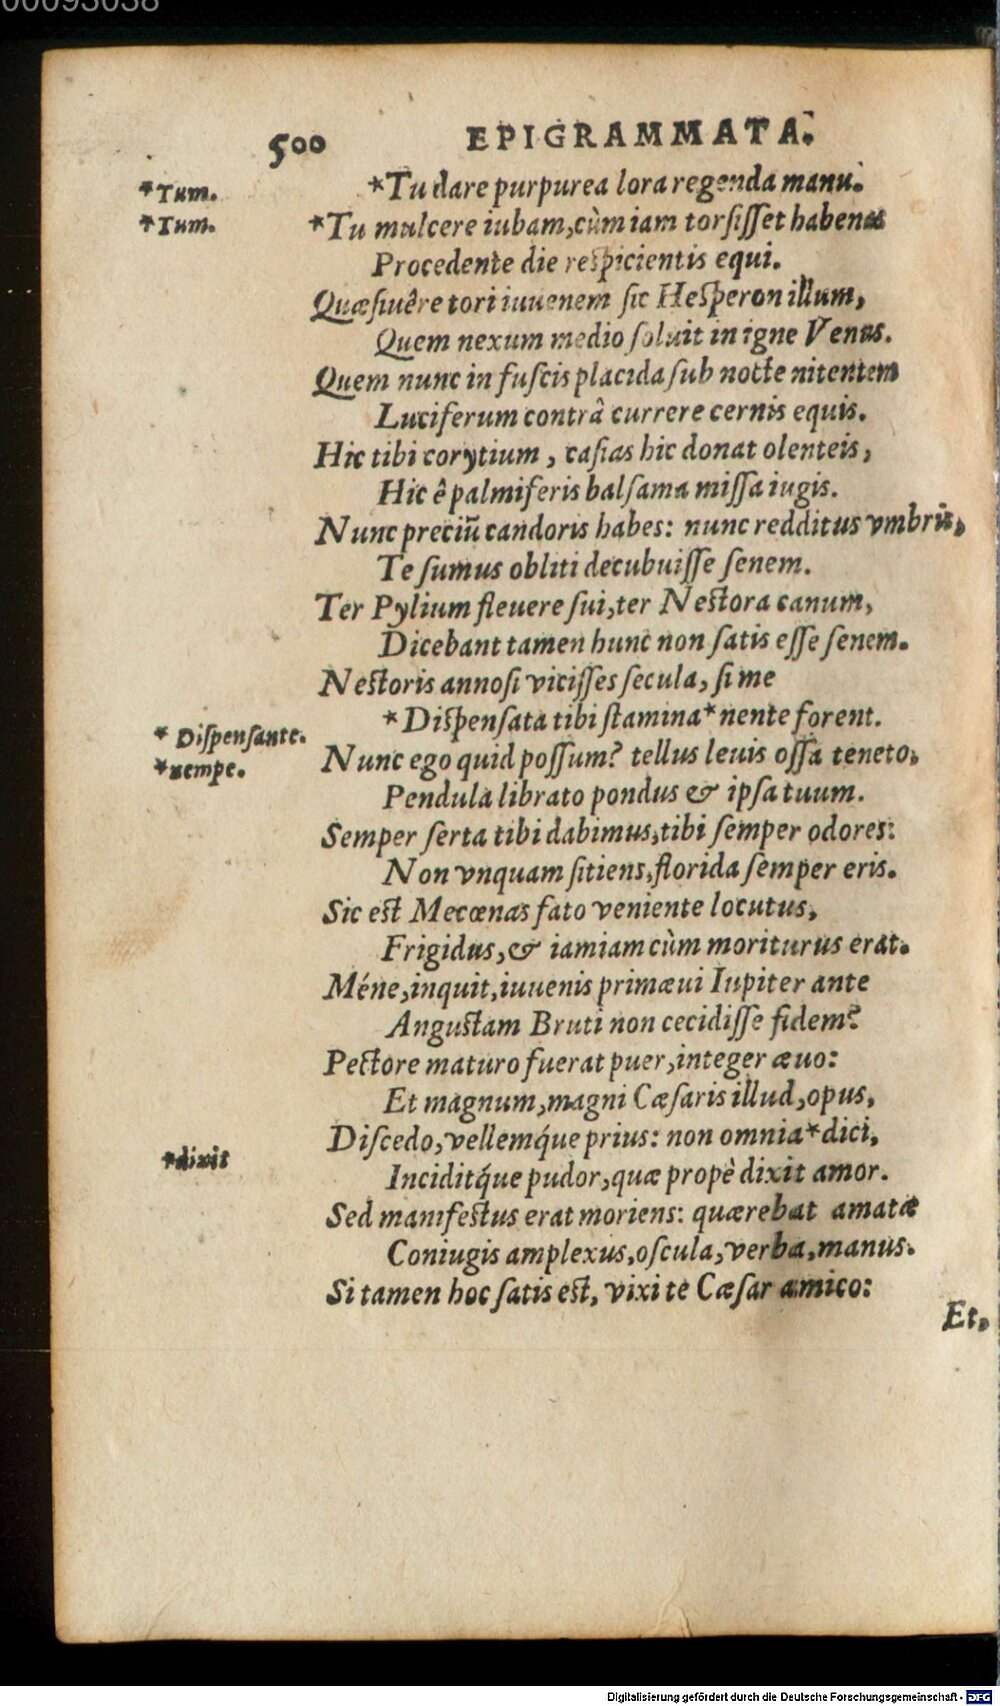 00093038
500 EPIGRAMMATA.
*Tum. *Tu dare purpurea lora regenda manu.
*Tum. *Tu mulcere iubam, cùm iam torsisset habenas
Procedente die respicientis equi.
Quæsiuêre tori iuuenem sic Hesperon illum,
Quem nexum medio soluit in igne Venus.
Quem nunc in fuscis placida sub nocte nitentem
Luciferum contrâ currere cernis equis.
Hic tibi corytium, casias hic donat olenteis,
Hic ê palmiferis balsama missa iugis.
Nunc preciũ candoris habes: nunc redditus vmbris,
Te sumus obliti decubuisse senem.
Ter Pylium fleuere sui, ter Nestora canum,
Dicebant tamen hunc non satis esse senem.
Nestoris annosi vicisses secula, si me
*Dispensata tibi stamina *nente forent.
* Dispensante.
*nempe. Nunc ego quid possum? tellus leuis ossa teneto,
Pendula librato pondus & ipsa tuum.
Semper serta tibi dabimus, tibi semper odores:
Non vnquam sitiens, florida semper eris.
Sic est Mecœnas fato veniente locutus,
Frigidus, & iamiam cùm moriturus erat.
Méne, inquit, iuuenis primæui Iupiter ante
Angustam Bruti non cecidisse fidem?
Pectore maturo fuerat puer, integer æuo:
Et magnum, magni Cæsaris illud, opus,
Discedo, vellemq́ue prius: non omnia *dici,
*dixit Inciditq́ue pudor, quæ propè dixit amor.
Sed manifestus erat moriens: quærebat amatæ
Coniugis amplexus, oscula, verba, manus.
Si tamen hoc satis est, vixi te Cæsar amico:
Et,
Digitalisierung gefördert durch die Deutsche Forschungsgemeinschaft - DFG